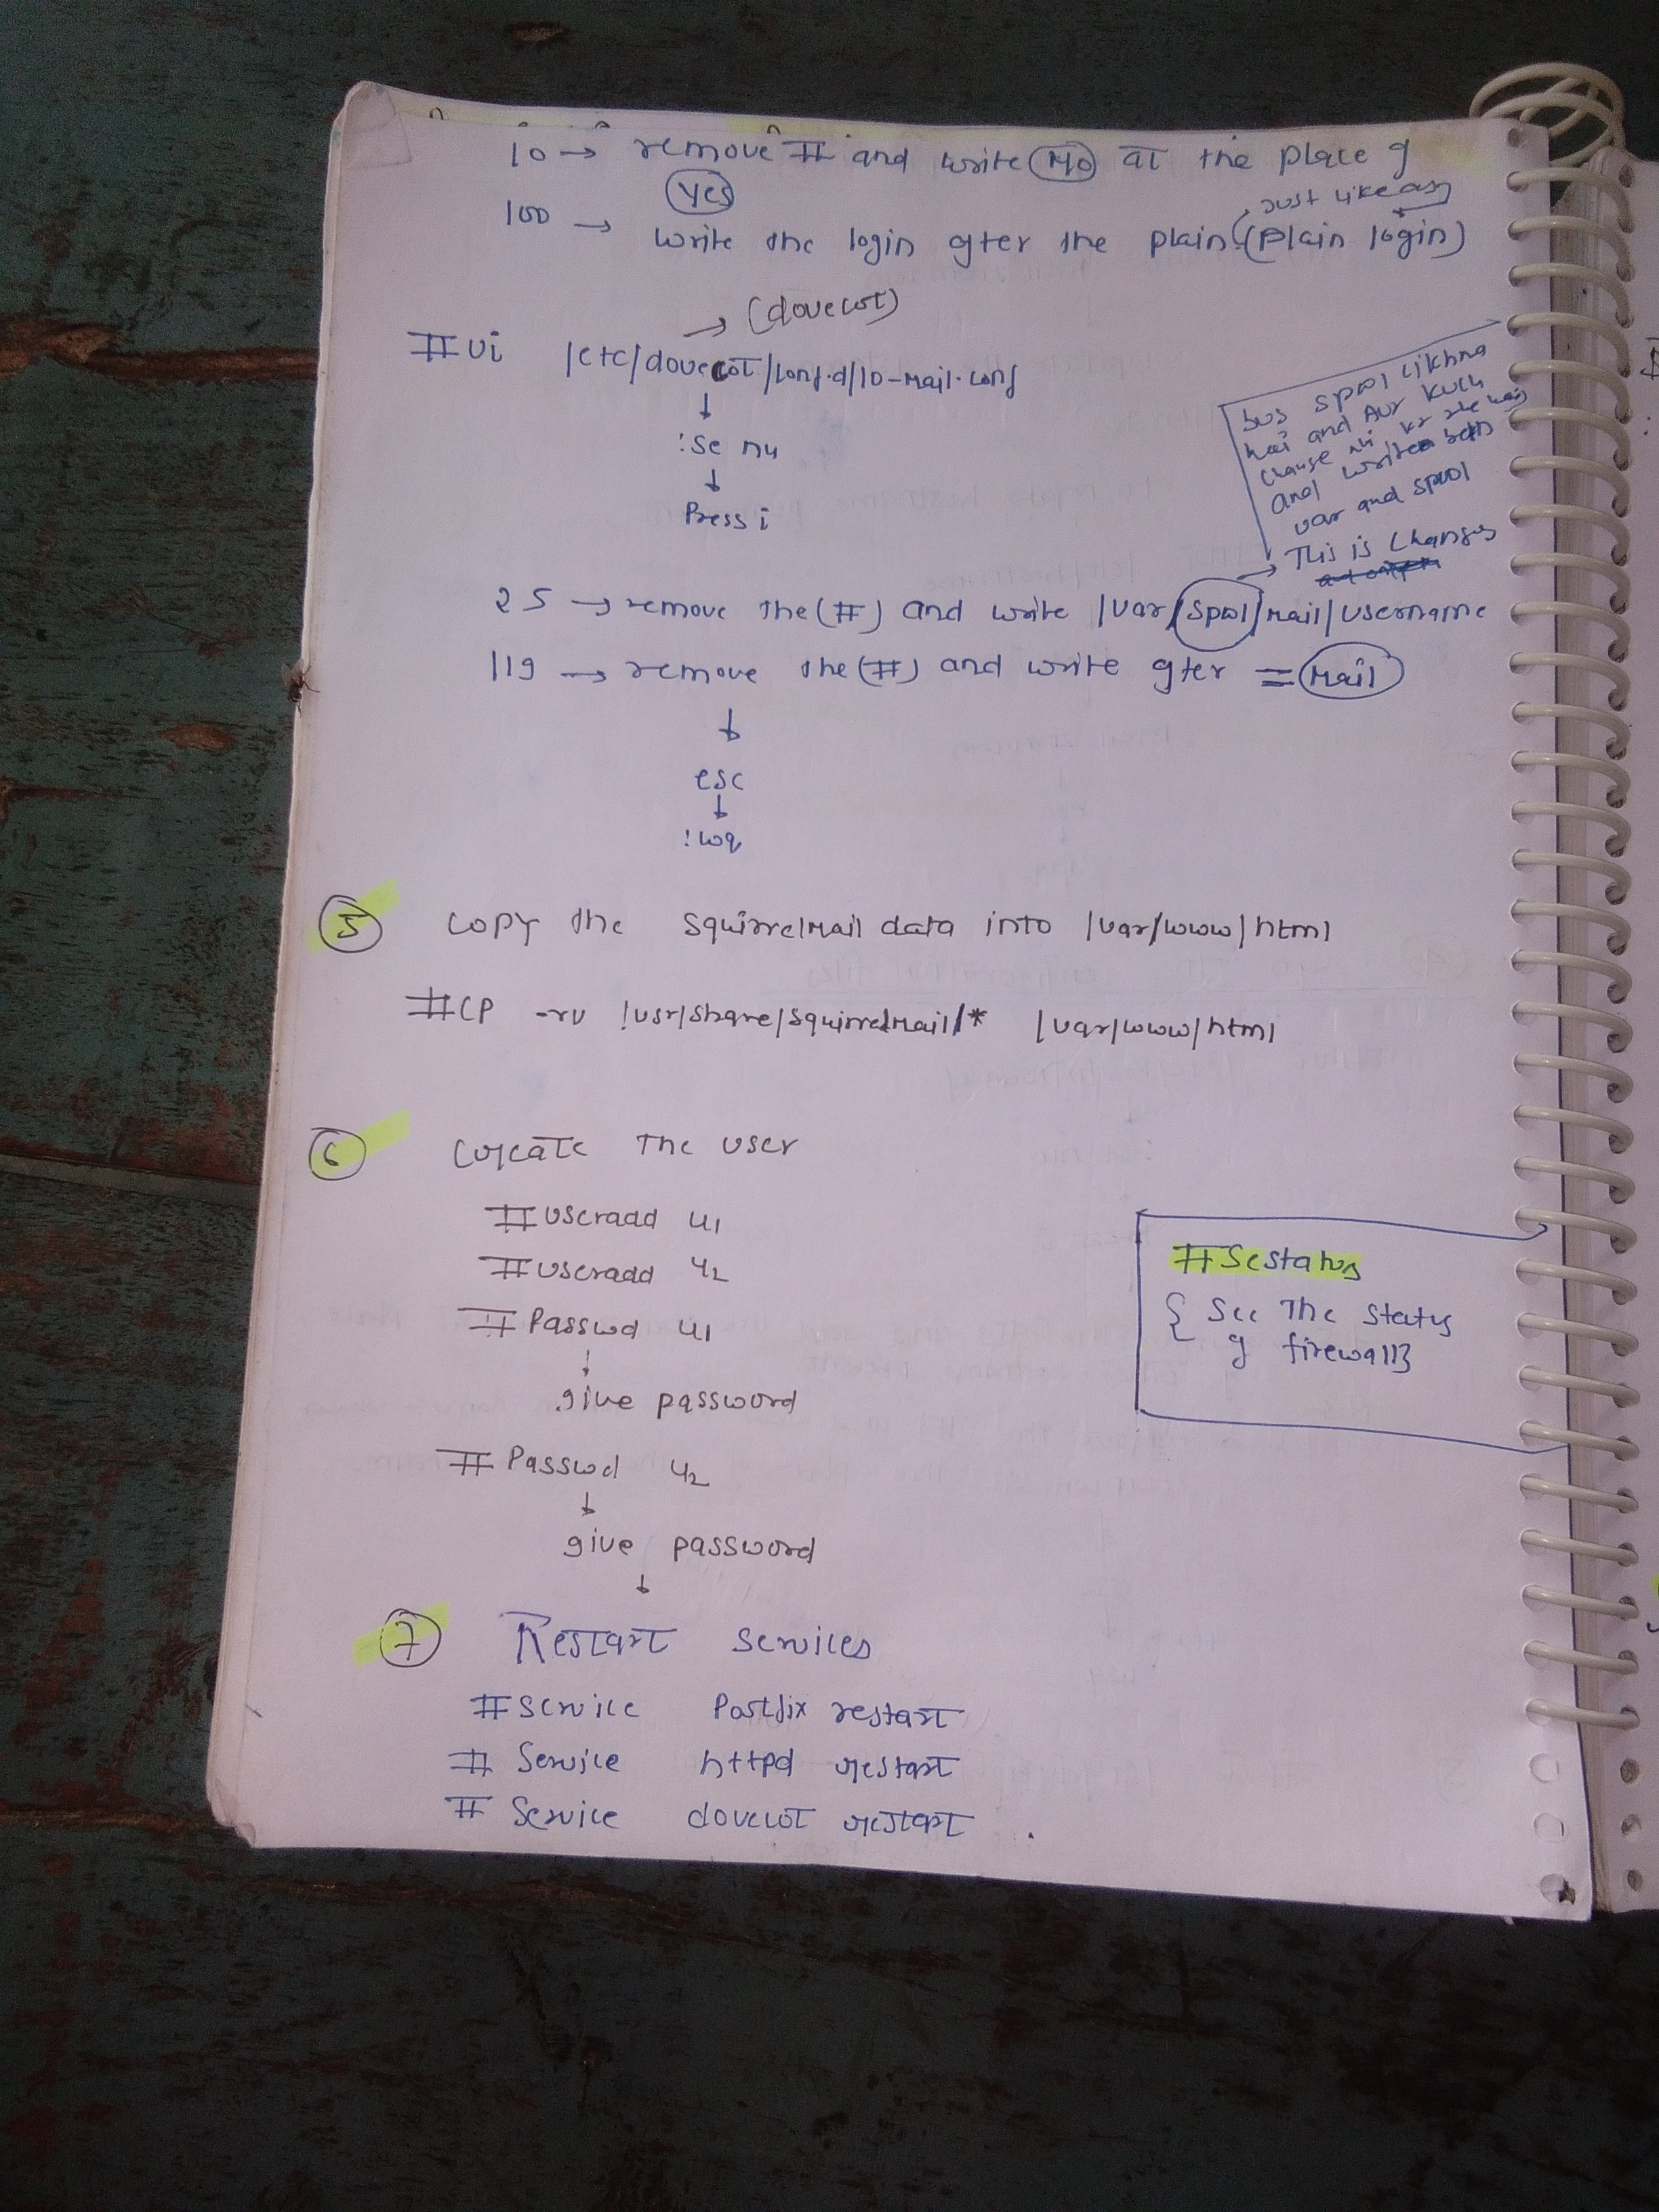 10 → remove # and write NO at the place of
Yes
100 → write the login after the plain (plain login)
Just like as
→ (dovecot)
#vi /etc/dovecot/conf.d/10-mail.conf
↓
:se nu
↓
Press i
bus spool likhna
hai and Aur kuch
change nhi kr rhe hai
and write
var and spool
→ This is Changes
25 → remove the (#) and write /var/spool/mail/username
119 → remove the (#) and write after = Mail
↓
esc
↓
:wq
5 copy the SquirrelMail data into /var/www/html
#cp -rv /usr/share/squirrelmail/* /var/www/html
6 Create The user
#useradd u1
#useradd u2
#Passwd u1
↓
give password
# Passwd u2
↓
give password
↓
#Sestatus
{ See The status
of firewall}
7 Restart services
#Service Postfix restart
# Service httpd restart
# Service dovecot restart .